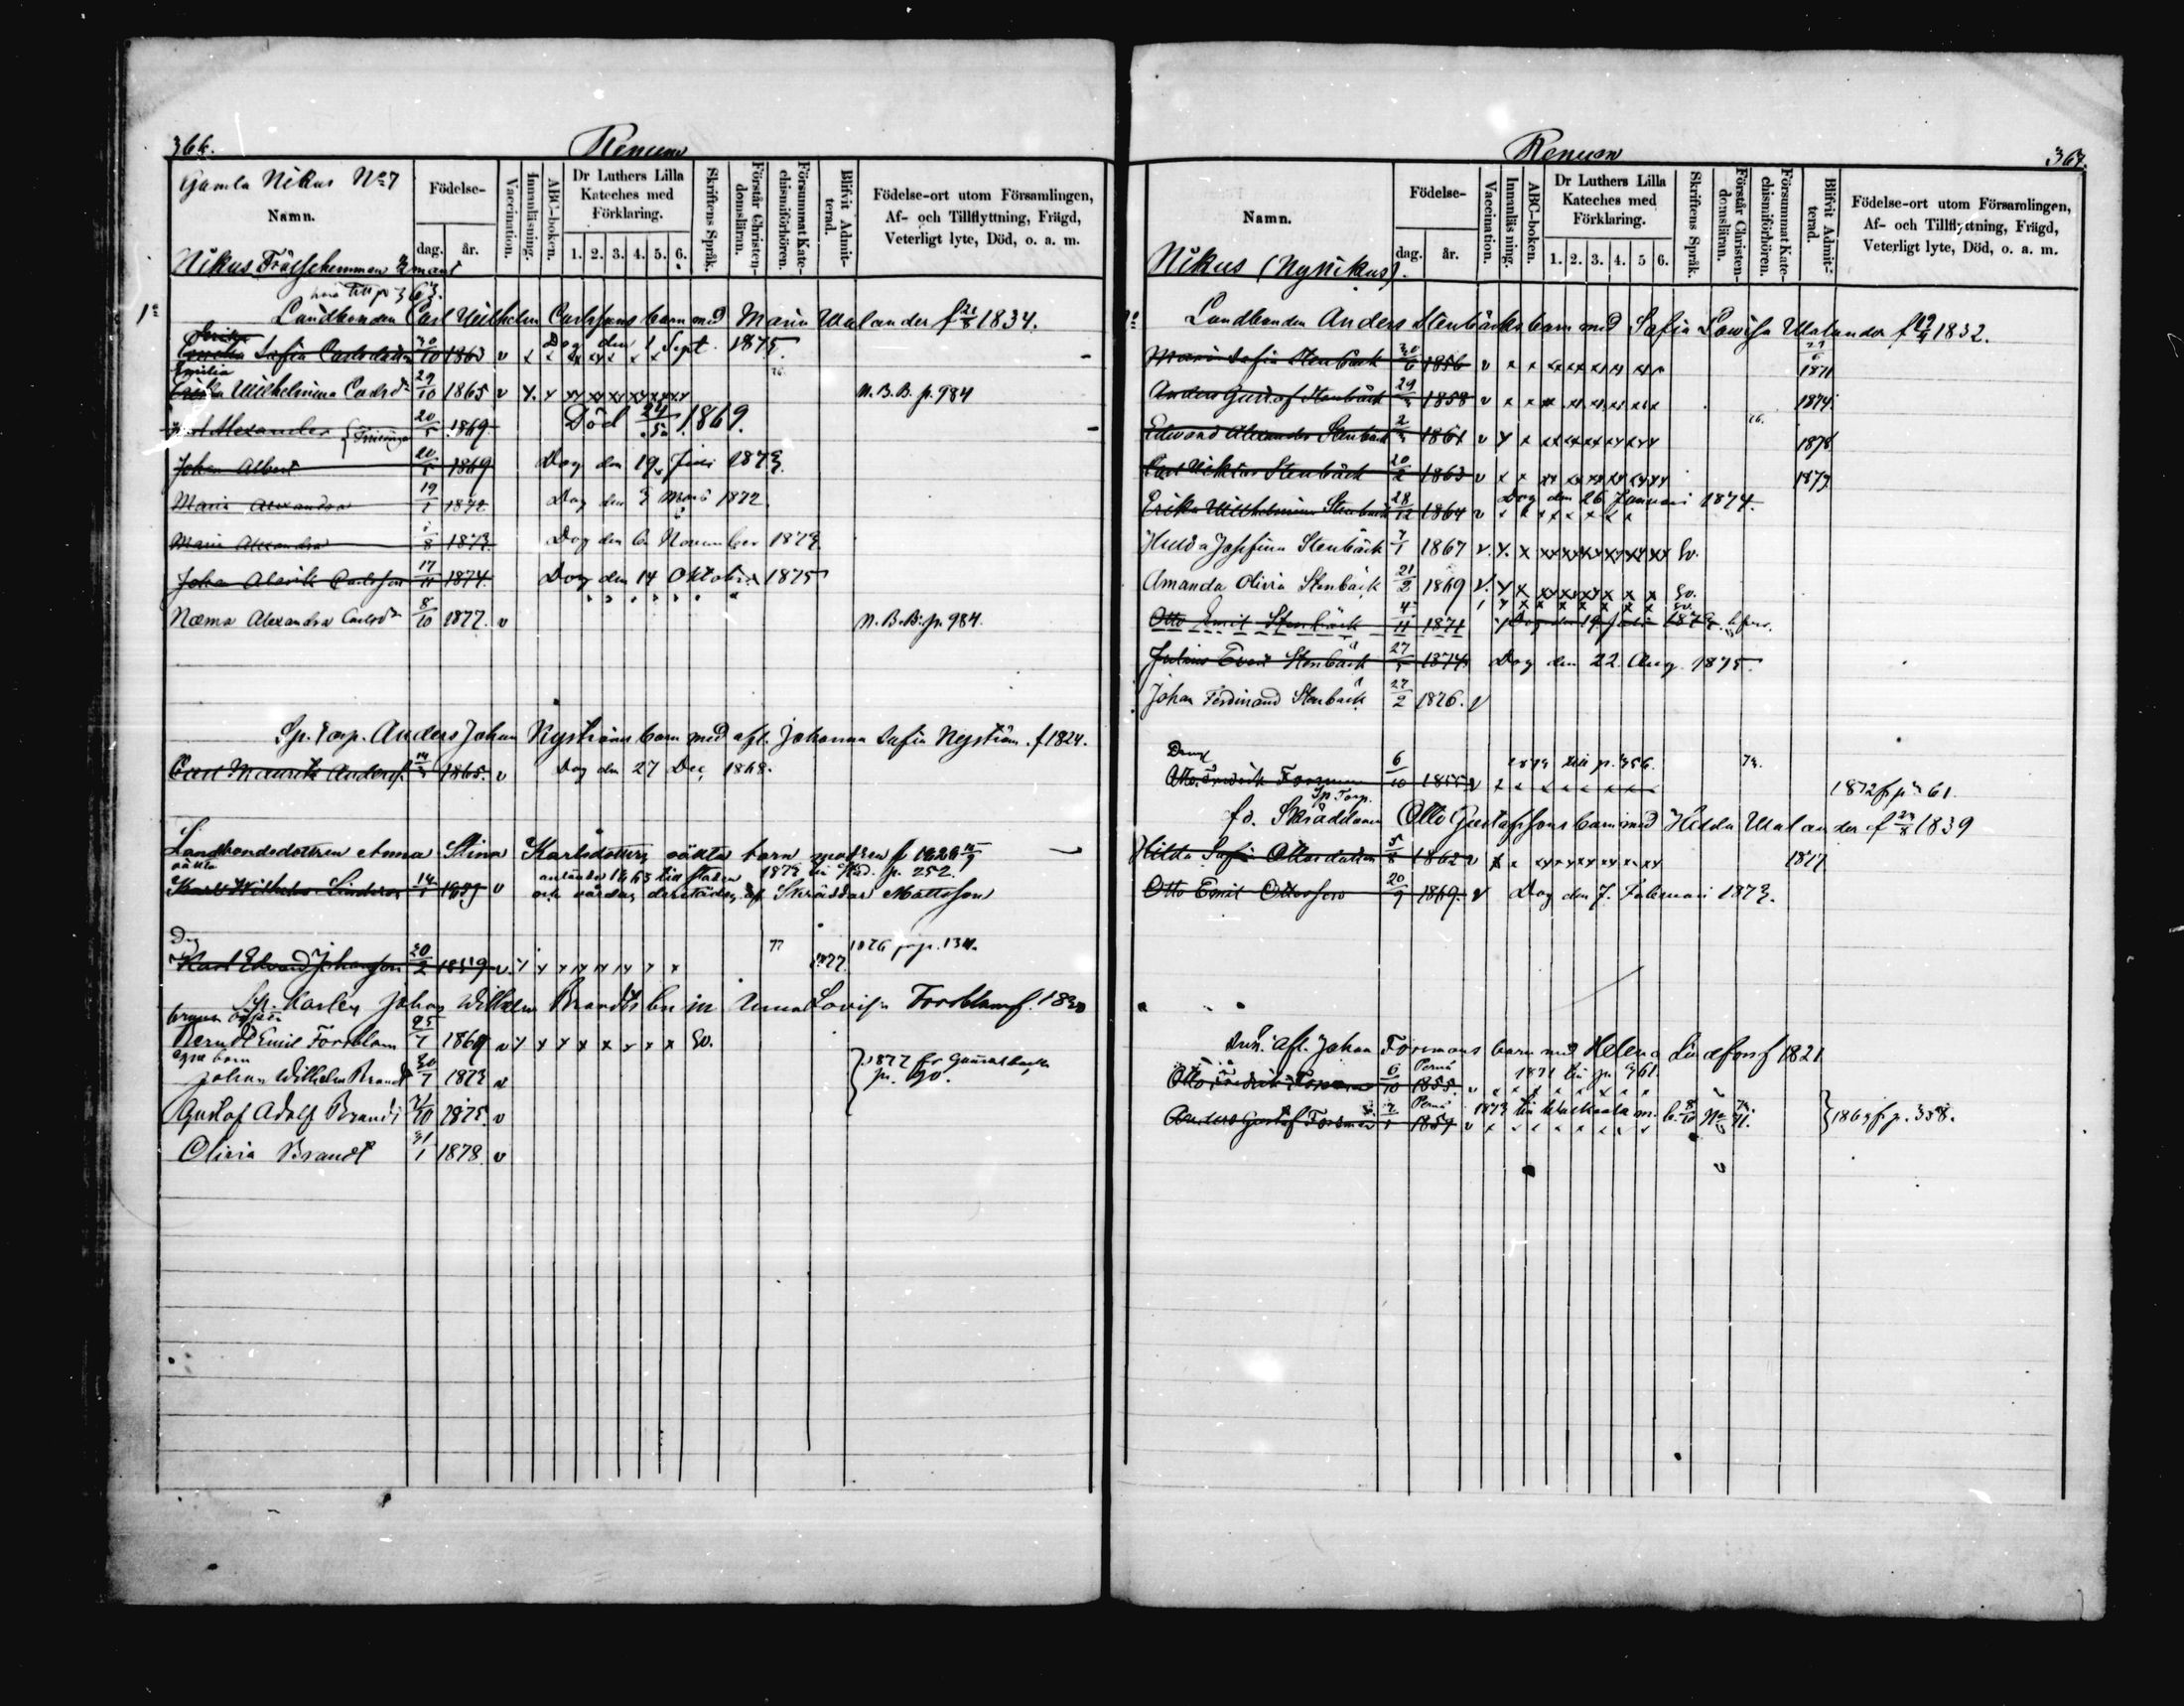 366.
Renum
Gamla Nikus No 7
Namn.
Födelse-
dag.
år.
Vaccination.
Innanläsning.
ABC-boken.
Dr Luthers Lilla
Kateches med
Förklaring.
1. 2. 3. 4. 5. 6.
Skriftens Språk.
Förstår Christen-
domsläran.
Försummat Kate-
chismiförhören.
Blifvit Admit-
terad.
Födelse-ort utom Församlingen,
Af- och Tillflyttning, Frägd,
Veterligt lyte, Död, o. a. m.
Nikus Frälsehemman
Landbonden Carl Wilhelm Carlssons barn med Maria Walander f 21/8 1834.
Safia Carlsdotter 30/10 1863 v Dog den 1 Sept. 1875.
Emilia
Wilhelmina Carlsdr 29/10 1865 v N.B.B. p. 984
Alexander 20/5 1869 Död 24/5 1869.
Johan Albert 20/5 1869 Dog den 19 Juni 1873.
Maria Alexandra 19/1 1872 Dog den 3 Mars 1872.
Maria Alexandra 1/8 1873. Dog den 6 November 1873.
Johan Alarik Carlsson 17/11 1874. Dog den 14 Oktober 1875
Næma Alexandra Carlsdr 8/10 1877. v N.B.B. p. 984.
Sp. Torp. Anders Johan Nyströms barn med afl. Johanna Safia Nyström. f 1824.
Carl Maurits Andersson 1865. v Dog den 27 Dec. 1868.
Landbondedottren Anna Stina Karlsdotters oäkta barn modren f 1826
oäkta
Karl Wilhelm 14/1 v och vårdas derstädes af Skräddar Mattsson
Drg
Karl Edvard Johansson 20/2 1859 v 77 1877. 1876 fr p. 134.
Sp. Karlen Johan Wilhelm Brandts bn m Anna Lovisa Forsblom f. 1830
Berndt Emil Forsblom 25/7 1869 v Sv.
egna barn
Johan Wilhelm Brandt 30/7 1873 v 1877 fr Gammalbacka p. 90.
Gustaf Adolf Brandt 21/10 1875. v
Olivia Brandt 31/1 1878 v
Renum
367.
Namn.
Födelse-
dag.
år.
Vaccination.
Innanläsning.
ABC-boken.
Dr Luthers Lilla
Kateches med
Förklaring.
1. 2. 3. 4. 5 6.
Skriftens Språk.
Förstår Christen-
domsläran.
Försummat Kate-
chismiförhören.
Blifvit Admit-
terad.
Födelse-ort utom Församlingen,
Af- och Tillflyttning, Frägd,
Veterligt lyte, Död, o. a. m.
Nikus (Nynikus).
Landbonden Anders Stenbäcks barn med Safia Lowisa Walander f 19/4 1832.
Maria Safia Stenbäck 1856 v 1871
Anders Gustaf Stenbäck 29 1858 v 1874.
Edward Alexander Stenbäck 2 1861 v 76. 1878
Carl Viktor Stenbäck 20/2 1863 v 1879
Erika Wilhelmina Stenbäck 28/12 1864 v Dog den 26 Januari 1874.
Hulda Josefina Stenbäck 7/1 1867 v. Sv.
Amanda Olivia Stenbäck 21/2 1869 v Sv.
Otto Emil Stenbäck 4/11 1871 Dog den 19 Juli
Julius Evert Stenbäck 27/5 1874. Dog den 22. Aug. 1875.
Johan Ferdinand Stenbäck 27/2 1876. v
Dreng
Otto Fredrik Forsman 6/10 1855 v 1873 till p. 356. 1872 fr p. 61.
Sp. Torp.
fd. Skräddaren Otto Gustafssons barn med Hilda Walander f 23/8 1839
Hilda Safia Ottosdotter 5/8 1862 v 1877
Otto Emil Ottosson 20/9 1869. v Dog den 7. Februari 1873.
afl. Johan Forsmans barn med Helena Lindfors f 1821
Otto Fredrik Forsman 6/10 Perno 1855. v 1871 till p. 361.
Anders Gustaf Forsman 1859 v 1873 till 1869 fr p. 358.